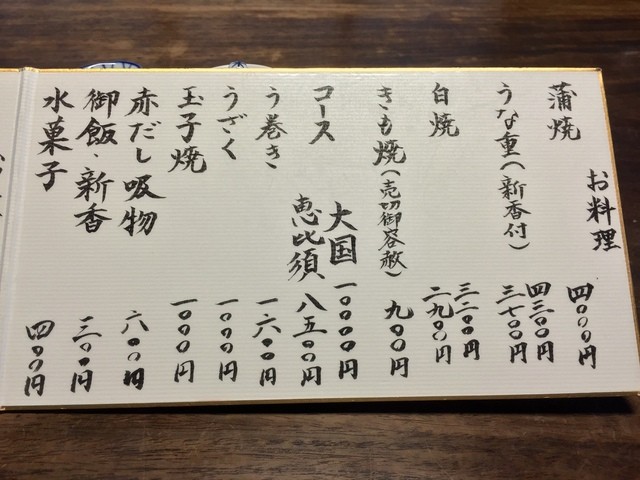 お料理
蒲焼 四〇〇〇円
うな重(新香付) 四三〇〇円
三七〇〇円
白焼 三二〇〇円
二九〇〇円
きも焼(売切御容赦) 九〇〇円
コース 大国 一〇〇〇〇円
恵比須 八五〇〇円
う巻き 一六〇〇円
うざく 一〇〇〇円
玉子焼 一〇〇〇円
赤だし吸物 六〇〇円
御飯、新香 三〇〇円
水菓子 四〇〇円